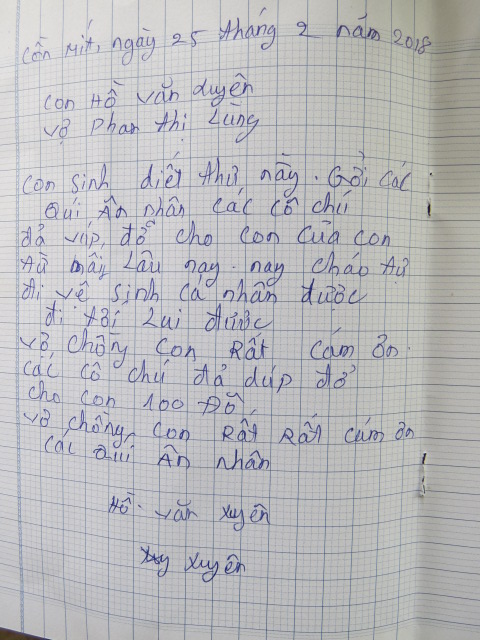 Cồn Mít, ngày 25 tháng 2 năm 2018
con Hồ văn duyên
vợ Phan thị Lùng
con sinh diết thử này. Gởi các
Quí Ân nhân các cô chú
đả vúp, đở cho con của con
từ mấy Lâu nay. nay cháo tự
đi vê sinh cá nhân được
đi tới Lui được
vỡ chồng con Rất cám ơn.
các cô chú đả dúp đở
cho con 100 Đô,
vỡ chồng, con Rất Rất cám ơn
các Quí Ân nhân
Hồ. văn xuyên
xuyên